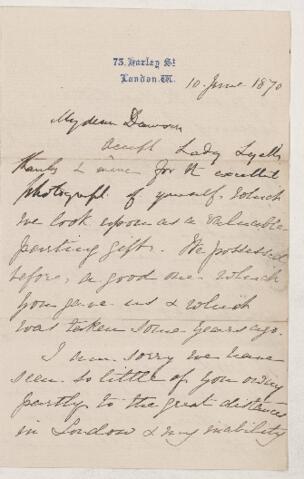 73, Harley St
London. W.
10 June 1870
My dear Dawson
Accept Lady Lyell's
thanks & mine for the excellent
photograph of yourself which
we look upon as a valuable
parting gift. We possessed
before, a good one which
you gave us & which
was taken some years ago.
I am sorry we have
seen so little of you owing
partly to the great distances
in London & my inability